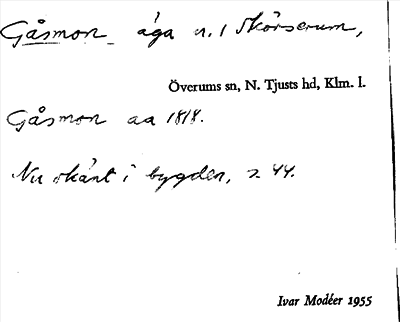 Gåsmon äga n. 1 Skörserum,
Överums sn, N. Tjusts hd, Klm. l.
Gåsmon aa 1818.
Nu okänt i bygden, 2 44.
Ivar Modéer 1955